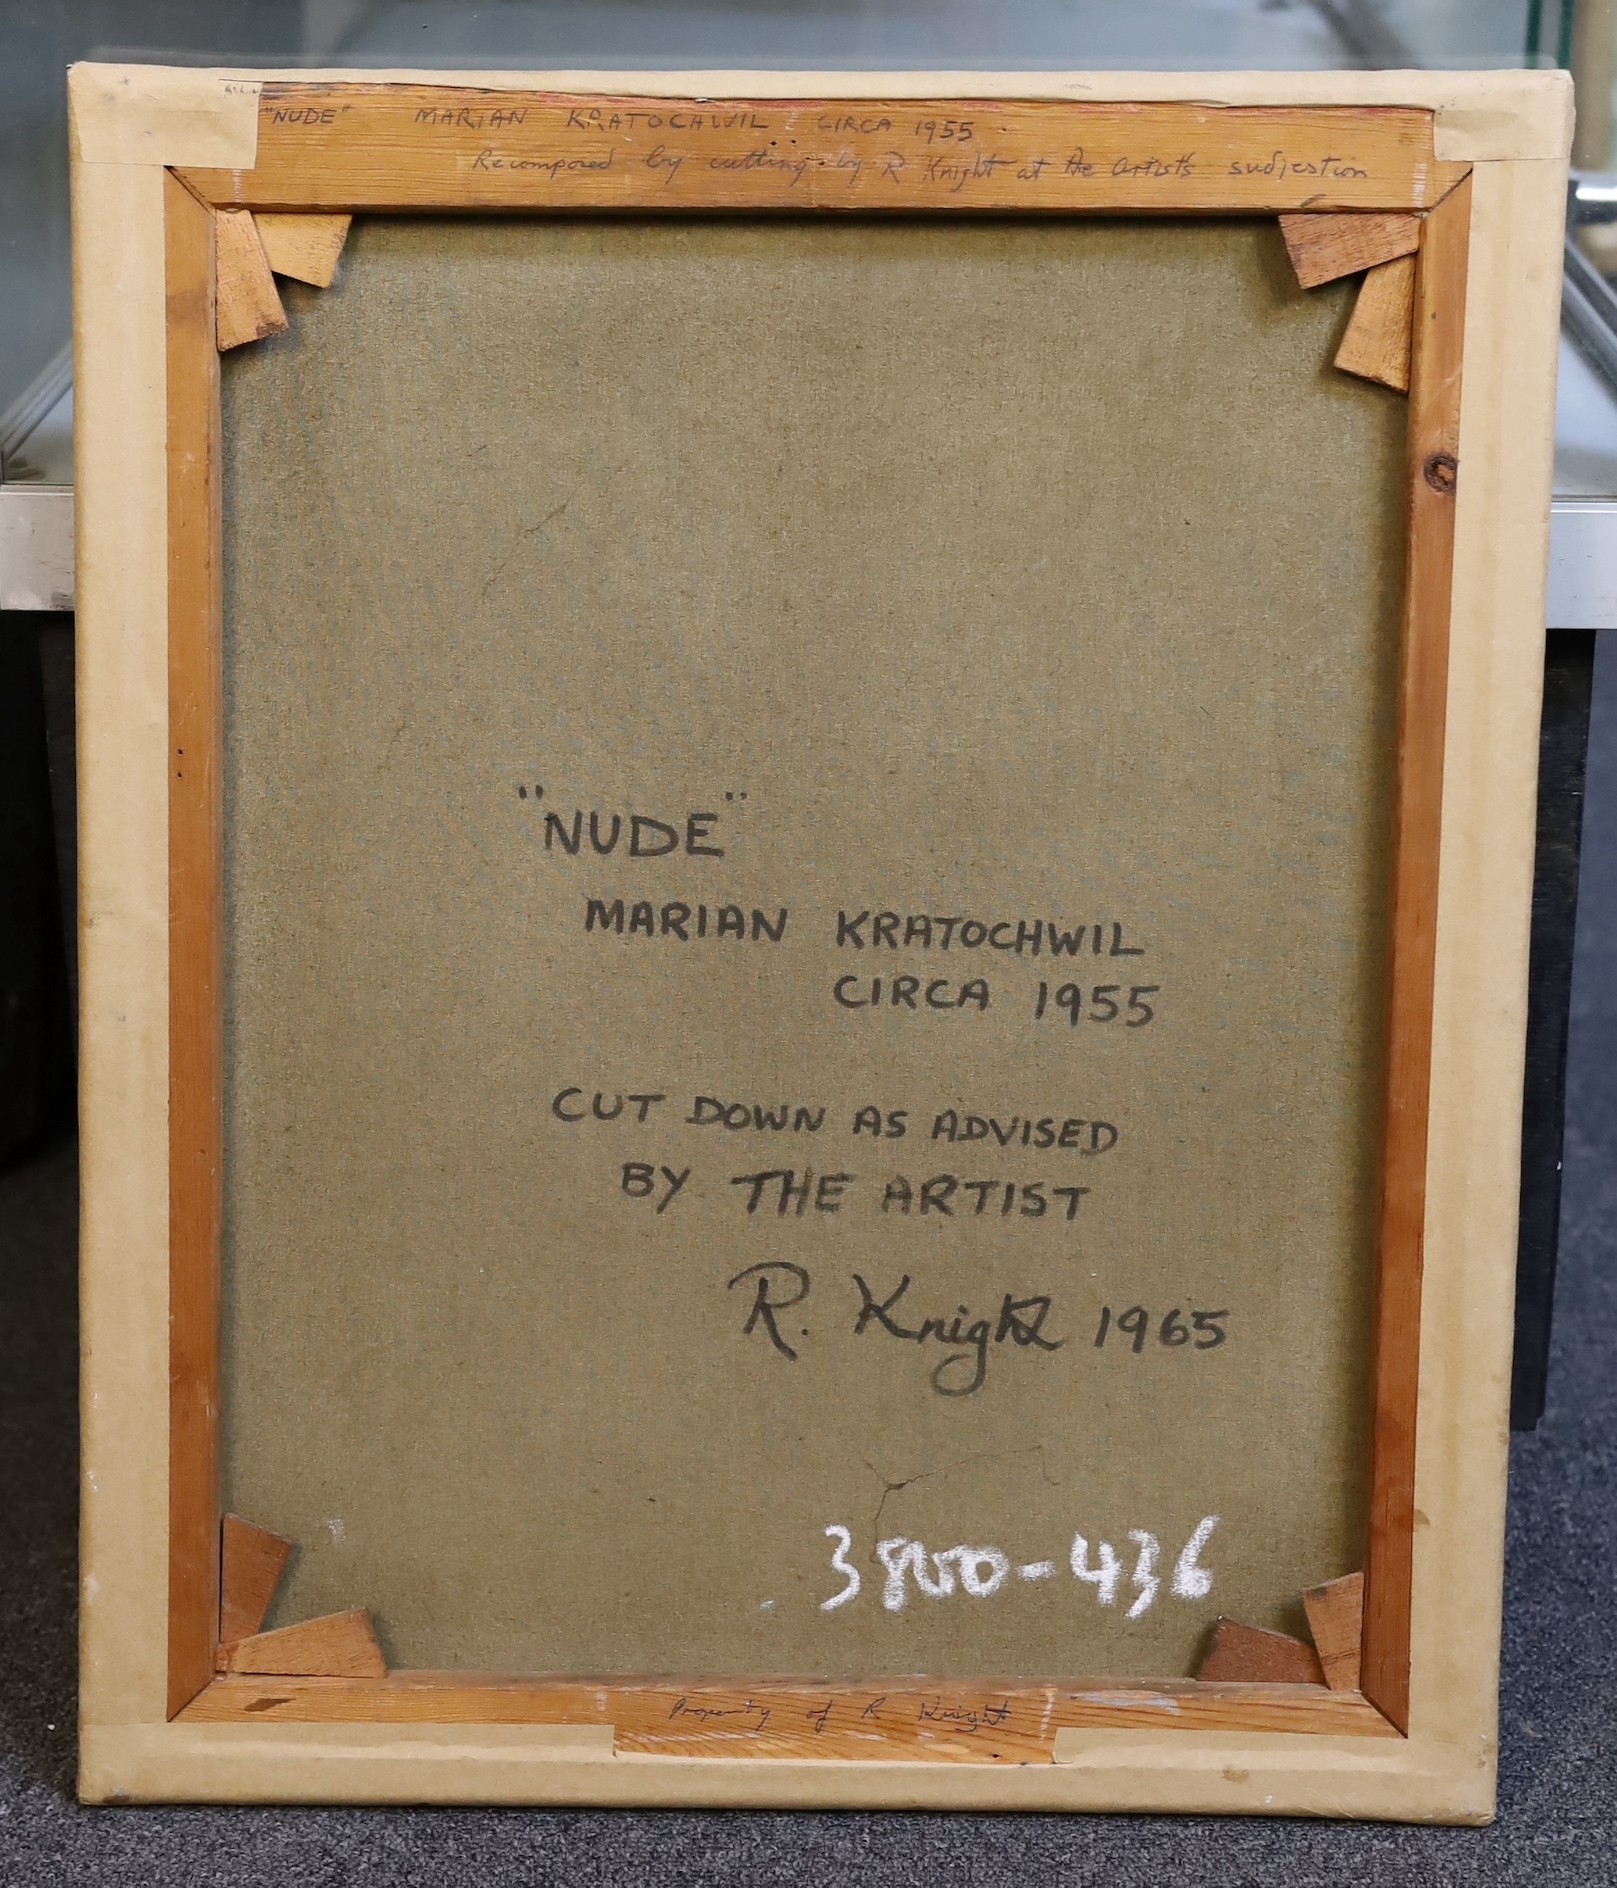 "NUDE" MARIAN KRATOCHWIL CIRCA 1955
Recomposed by cutting by R Knight at the artist's sudjestion
"NUDE"
MARIAN KRATOCHWIL
CIRCA 1955
CUT DOWN AS ADVISED
BY THE ARTIST
R. Knight 1965
3800-436
Property of R Knight